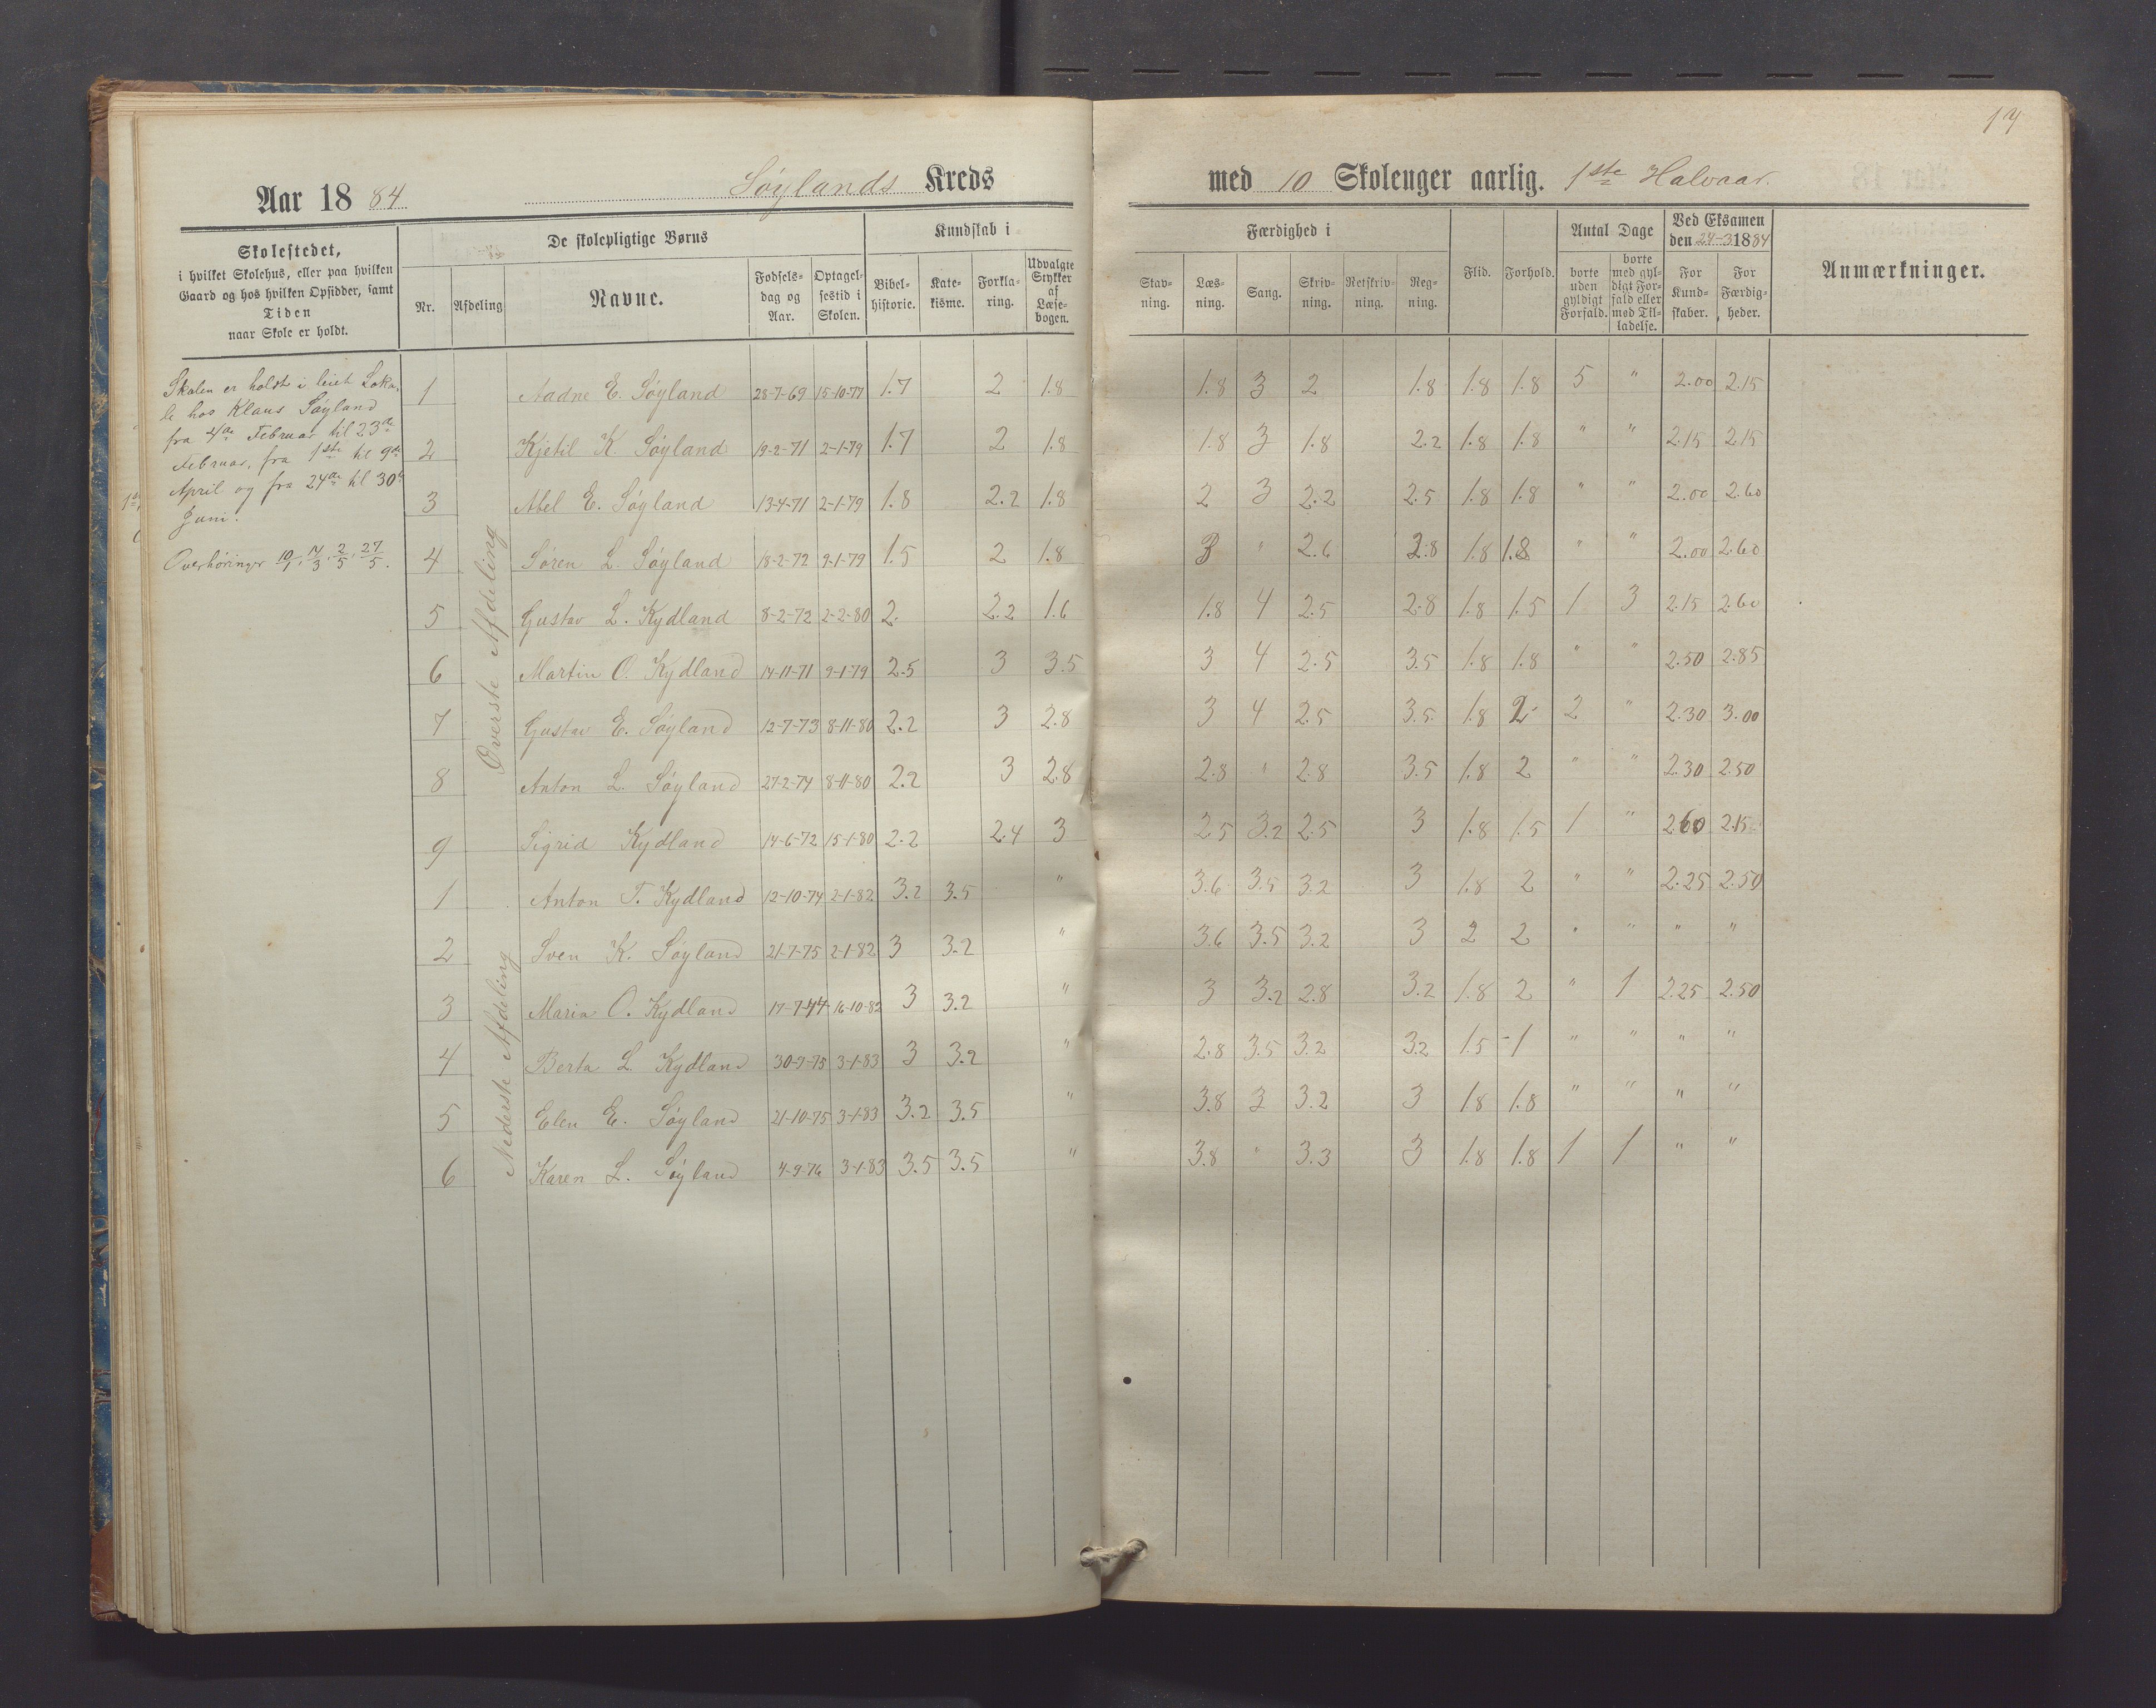 14
Aar 1884. Søylands Kreds med 10 Skoleuger aarlig. 1ste Halvaar.
Skolestedet,
i hvilket Skolehus, eller paa hvilken
Gaard og hos hvilken Opsidder, samt
Tiden
naar Skole er holdt.
De skolepligtige Børns
Nr. Afdeling Navne. Fødsels-dag og Aar. Optagel-sestid i Skolen.
Kundskab i
Bibel-historie. Kate-kisme. Forkla-ring. Udvalgte Stykker af Læse-bogen.
Færdighed i
Stav-ning. Læs-ning. Sang. Skriv-ning. Retskriv-ning. Reg-ning.
Flid. Forhold.
Antal Dage
borte uden gyldigt Forfald. borte med gyl-digt For-fald eller med Til-ladelse.
Ved Eksamen
den 24-3 1884
For Kund-skaber. For Færdig-heder.
Anmærkninger.
Skolen er holdt i leiet Loka-
le hos Klaus Søyland
fra 4de Februar til 23de
Februar, fra 1ste til 9de
April og fra 24de til 30te
Juni.
Overhøringer 10/1, 14/3, 2/5, 27/5.
Øverste Afdeling
1 Aadne E. Søyland 28-7-69 15-10-77 1.7 2 1.8 1.8 3 2 1.8 1.8 1.8 5 " 2.00 2.15
2 Kjetil K. Søyland 19-2-71 2-1-79 1.7 2 1.8 1.8 3 1.8 2.2 1.8 1.8 " " 2.15 2.15
3 Abel E. Søyland 13-4-71 2-1-79 1.8 2.2 1.8 2 3 2.2 2.5 1.8 1.8 " " 2.00 2.60
4 Søren L. Søyland 18-2-72 9-1-79 1.5 2 1.8 3 " 2.6 2.8 1.8 1.8 " " 2.00 2.60
5 Gustav L. Kydland 8-2-72 2-2-80 2. 2.2 1.6 1.8 4 2.5 2.8 1.8 1.5 1 3 2.15 2.60
6 Martin O. Kydland 14-11-71 9-1-79 2.5 3 3.5 3 4 2.5 3.5 1.8 1.8 " " 2.50 2.85
7 Gustav E. Søyland 12-7-73 8-11-80 2.2 3 2.8 3 4 2.5 3.5 1.8 2 2 " 2.30 3.00
8 Anton L. Søyland 27-2-74 8-11-80 2.2 3 2.8 2.8 " 2.8 3.5 1.8 2 " " 2.30 2.50
9 Sigrid Kydland 14-6-72 15-1-80 2.2 2.4 3 2.5 3.2 2.5 3 1.8 1.5 1 " 2.60 2.15
Nederste Afdeling
1 Anton T. Kydland 12-10-74 2-1-82 3.2 3.5 " 3.6 3.5 3.2 3 1.8 2 " " 2.25 2.50
2 Sven K. Søyland 21-7-75 2-1-82 3 3.2 " 3.6 3.5 3.2 3 2 2 " " " "
3 Maria O. Kydland 17-7-74 16-10-82 3 3.2 " 3 3.2 2.8 3.2 1.8 2 " 1 2.25 2.50
4 Berta L. Kydland 30-9-75 3-1-83 3 3.2 " 2.8 3.5 3.2 3.2 1.5 -1 " " " "
5 Elen E. Søyland 21-10-75 3-1-83 3.2 3.5 " 3.8 3 3.2 3 1.8 1.8 " " " "
6 Karen L. Søyland 4-9-76 3-1-83 3.5 3.5 " 3.8 " 3.3 3 1.8 1.8 1 1 " "